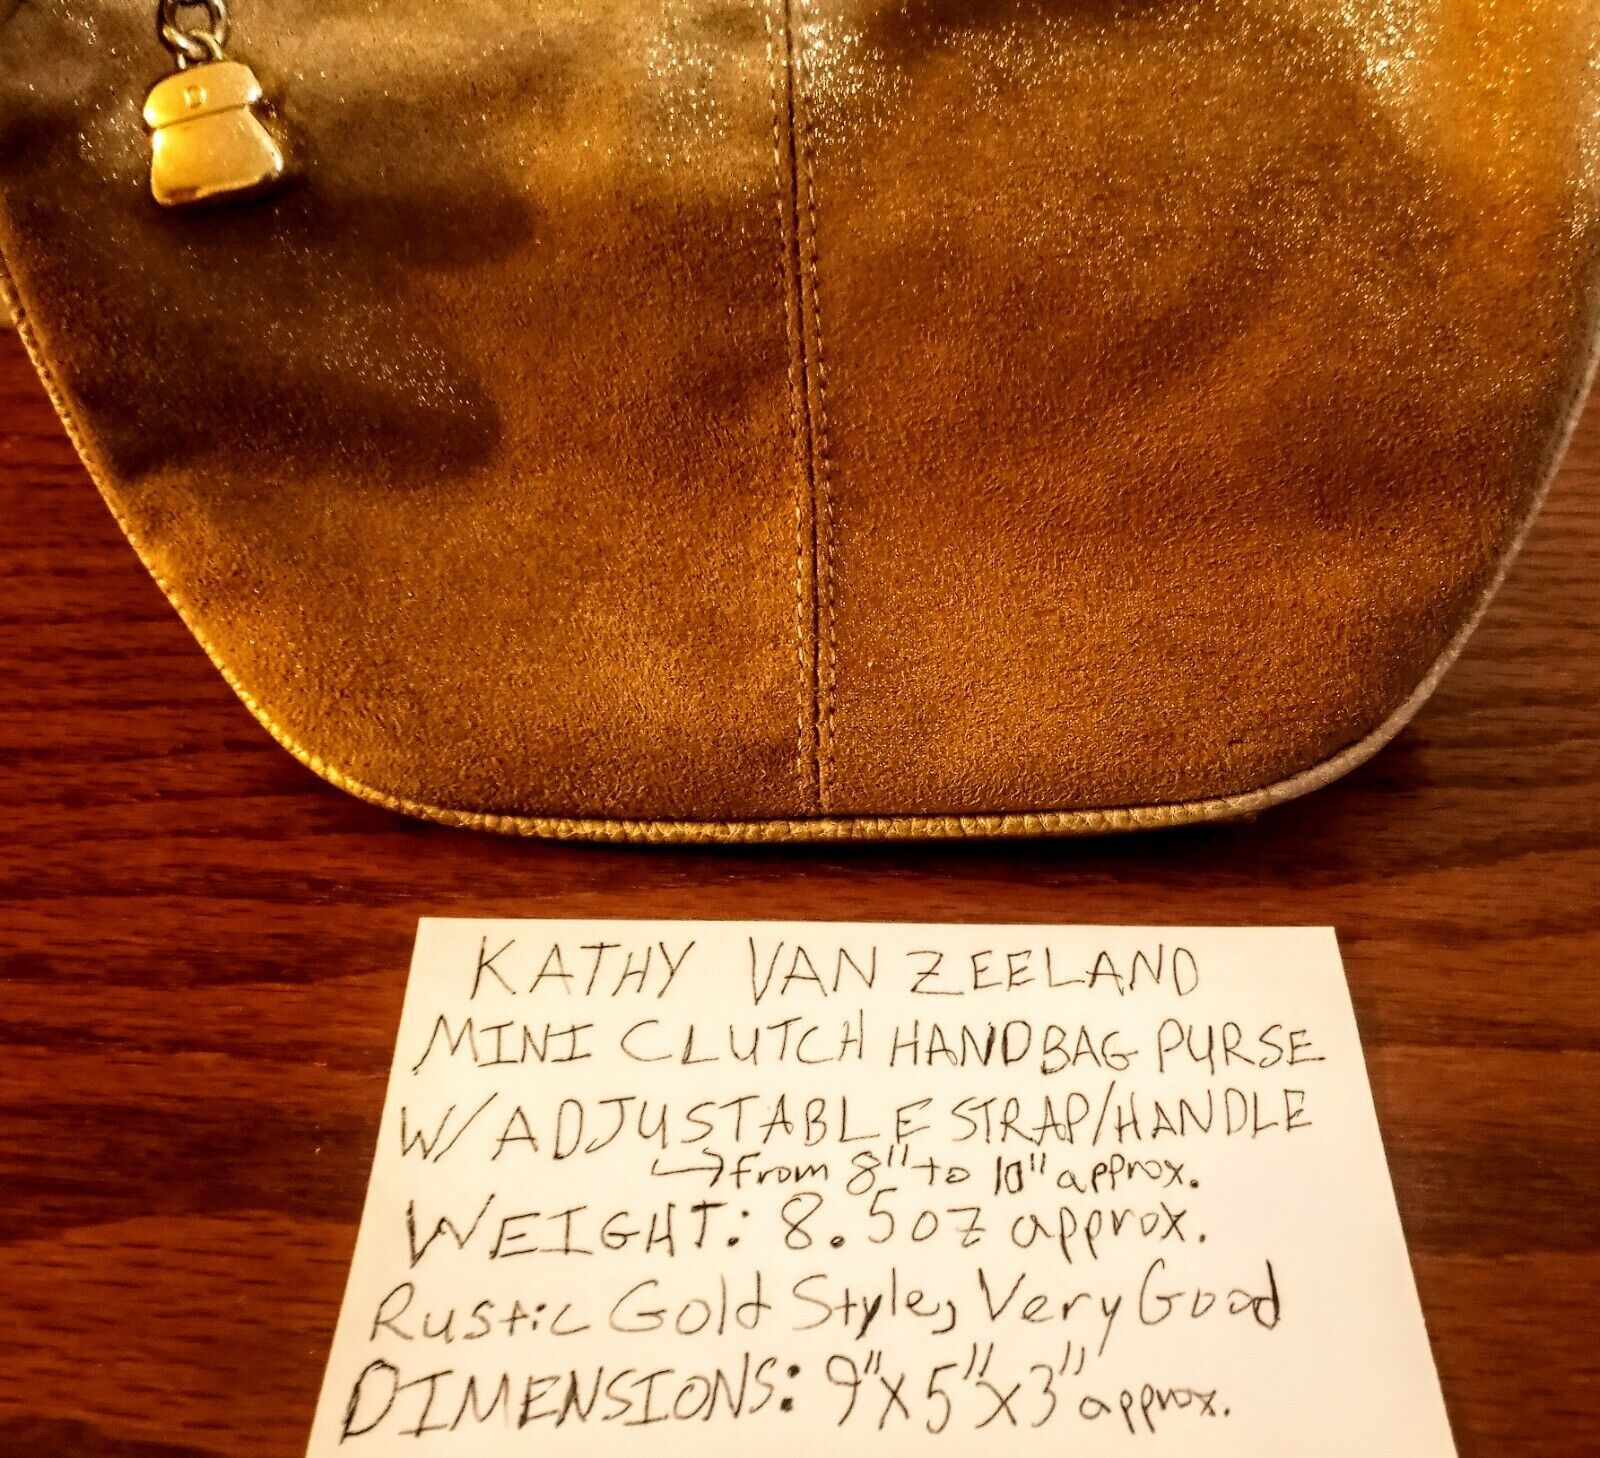 KATHY VAN ZEELAND
MINI CLUTCH HANDBAG PURSE
W/ ADJUSTABLE STRAP/HANDLE
→ from 8" to 10" approx.
WEIGHT: 8.5oz approx.
Rustic Gold Style, Very Good
DIMENSIONS: 9"x5"x3" approx.